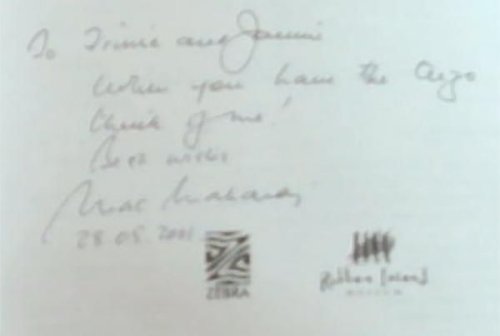 To Trinie and Jannie
When you have the Argo
think of me!
Best wishes
Mac Maharaj
28.05.2001
ZEBRA
Robben Island
MUSEUM